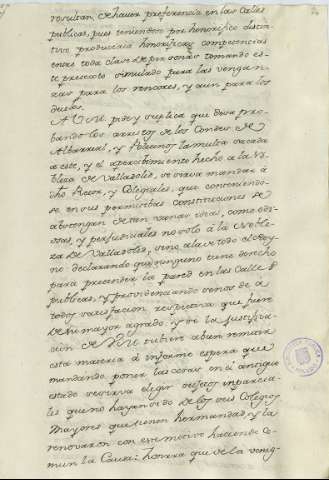 resultan, de haver preferencia en las Calles
publicas, pues teniendolo por honorifico distin-
tivo, produciria honorificas competencias
entre toda clase de personas tomando es-
te pretexto simulado para las vengan-
zas para los rencores, y aun para los
duelos.
A V.M. pide y suplica que deva pro-
bando los arrestos de los Condes de
Albarreal, y Polentinos la multa sacada
a este, y el apercibimiento hecho a la No-
bleza de Valladolid, se sirva mandar á
dho Rector, y Colegiales, que conteniendo-
se en sus permitidas constituciones se
abstengan de tan vanas ideas, como odio-
sas, y perjudiciales no solo á la Noble-
za de Valladolid, sino a la de todo el Rey-
no: declarando que ninguno tiene derecho
para pretender la pared en las Calles
publicas, y providenciando en os de a
todos satisfacion respectiva que fuere
de su mayor agrado. y si la justifica-
cion de V.M. tubiere a bien remitir
esta materia á informe espera que
mandando poner las cosas en su antiguo
estado se sirva elegir sujetos inparcia-
les que no hayan sido de los seis Colegios
Mayores que tienen hermandad, y la
renovaron con este motivo haciendo Co-
mun la Causa: honrara que de la venig-